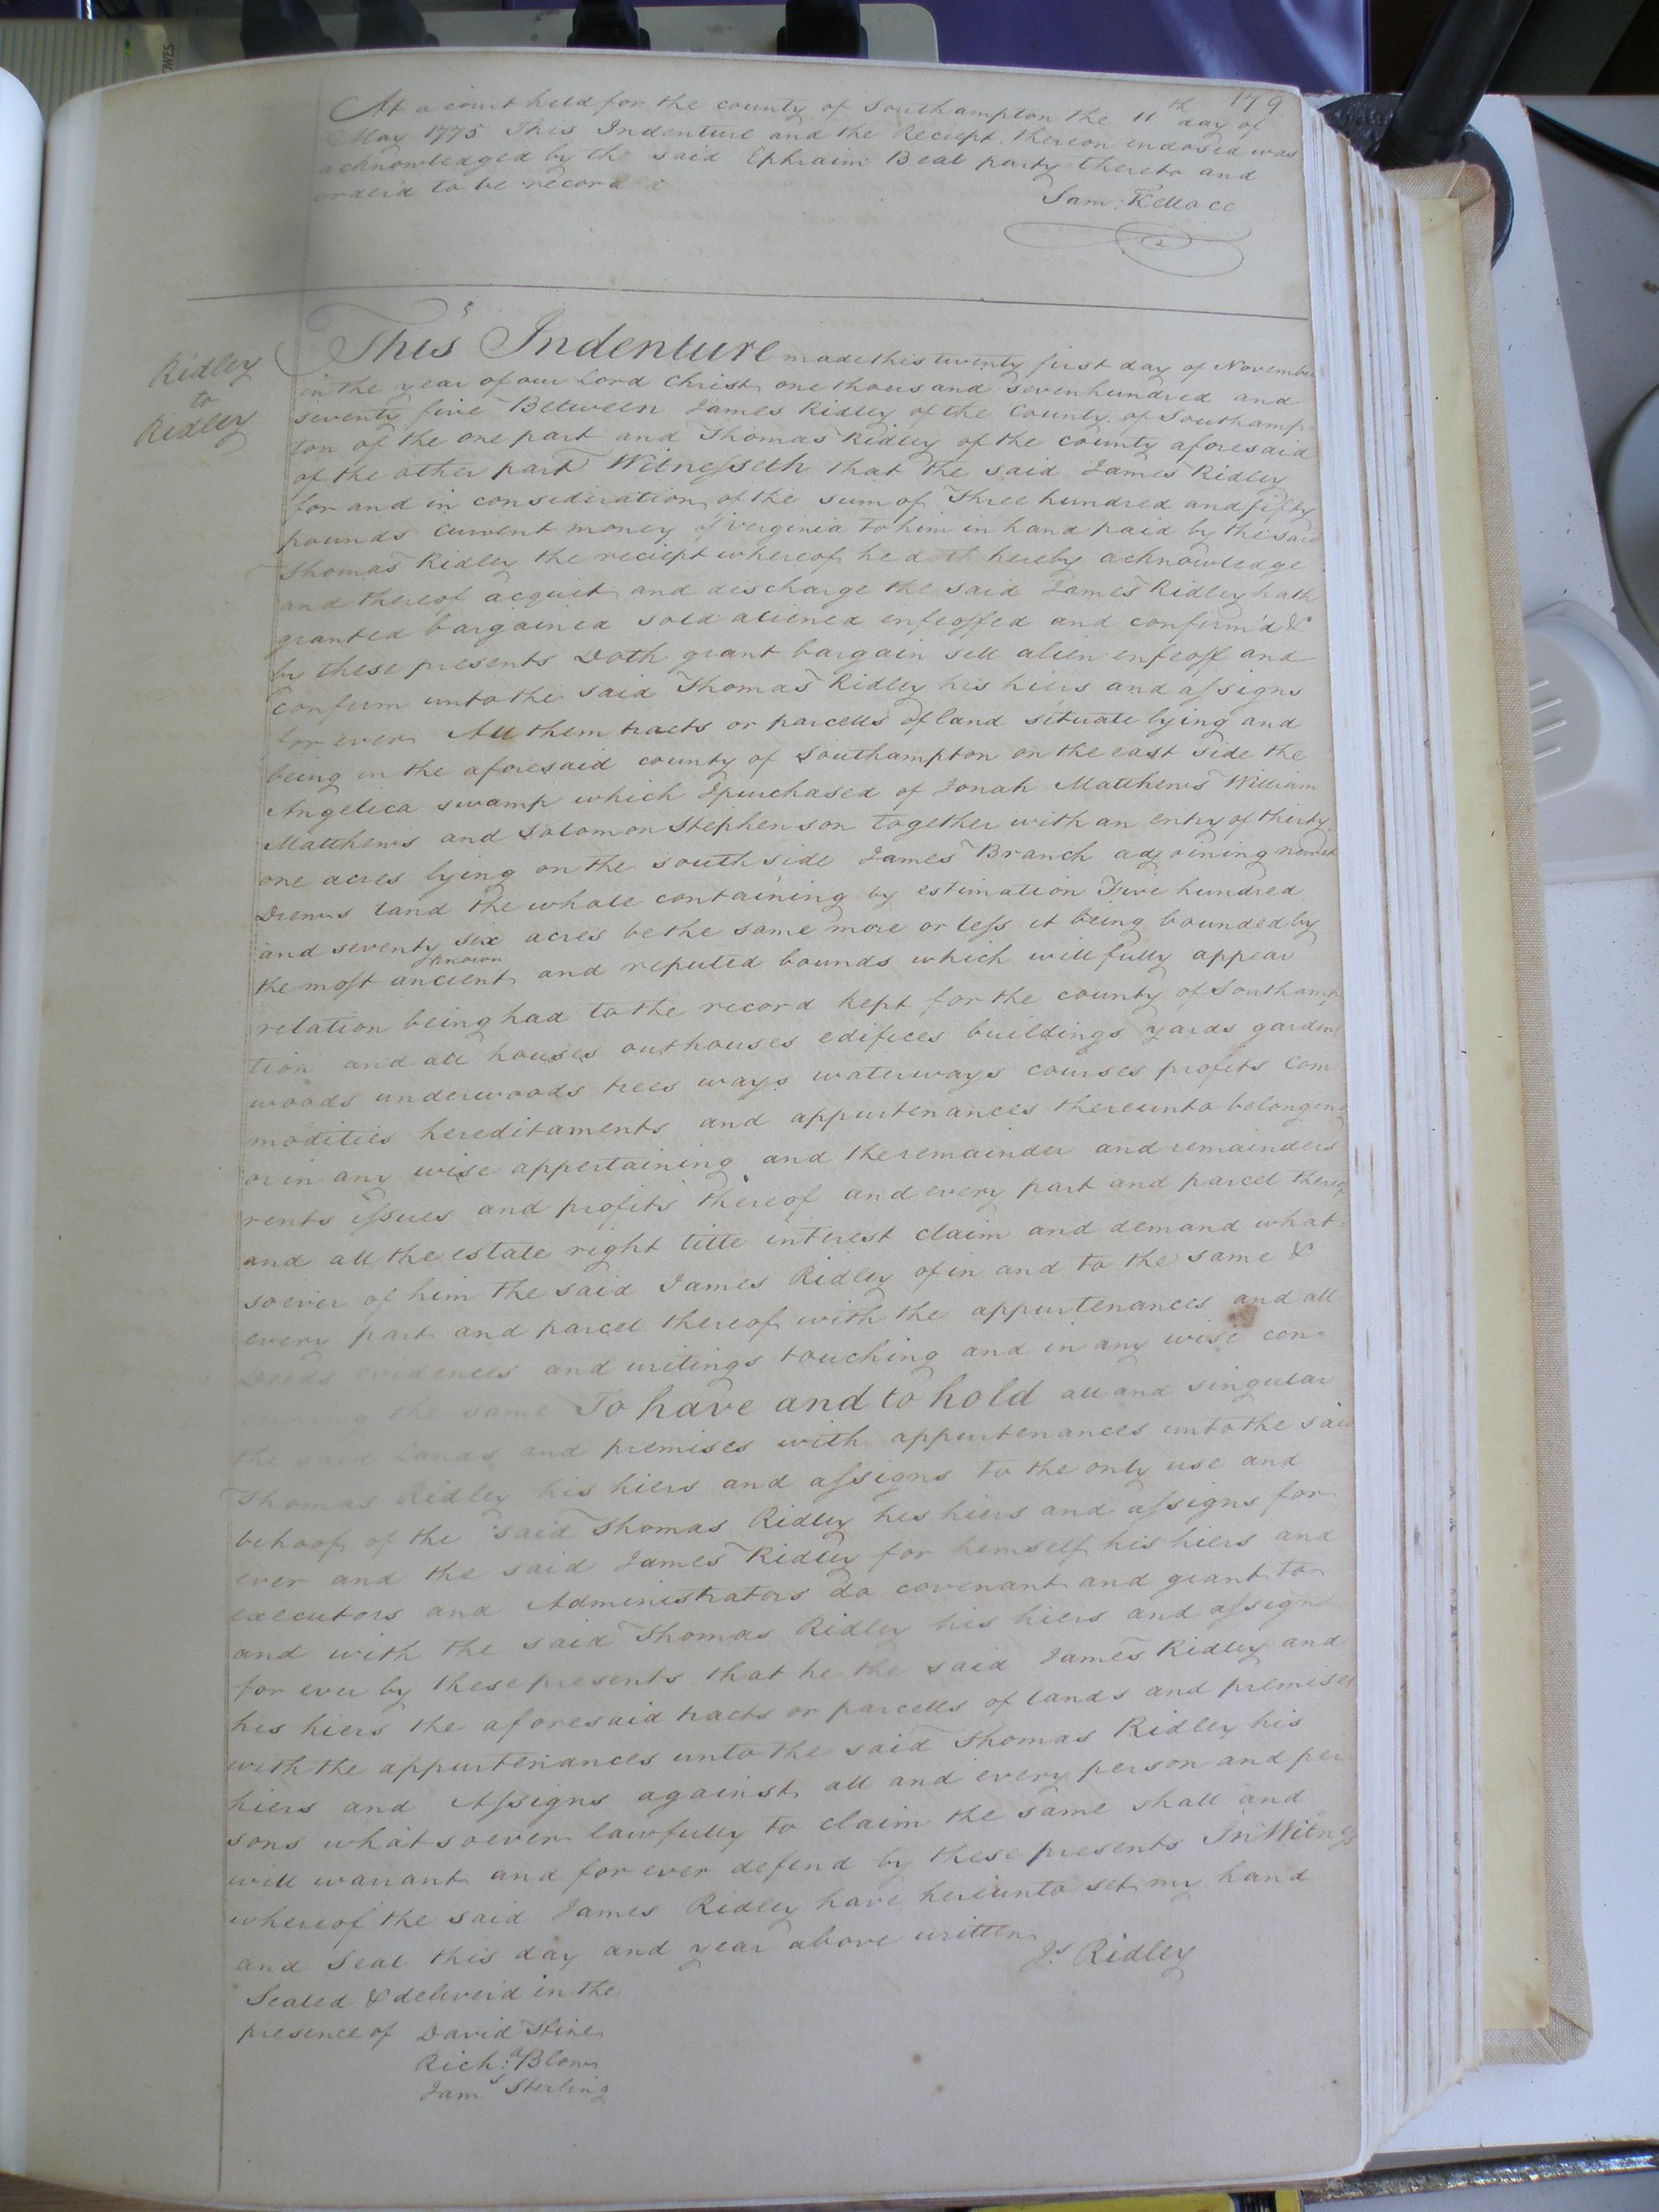 179
At a court held for the county of Southampton the 11th day of
May 1775 This Indenture and the Reciept thereon endosed was
acknowledged by the said Ephraim Beal party thereto and
order'd to be record
Sam: Kello CC
Ridley
to
Ridley
This Indenture made this twenty first day of November
in the year of our Lord Christ one thousand seven hundred and
seventy five Between James Ridley of the County of Southamp
ton of the one part and Thomas Ridley of the county aforesaid
of the other part Witnesseth that the said James Ridley
for and in consideration of the sum of Three hundred and fifty
pounds current money of Verginia to him in hand paid by the said
Thomas Ridley the reciept whereof he doth hereby acknowledge
and thereof acquit and discharge the said James Ridley hath
granted bargained sold aliened enfeoffed and confirm'd &
by these presents Doth grant bargain sell alien enfeoff and
confirm unto the said Thomas Ridley his hiers and assigns
for ever All them tracts or parcells of land situate lying and
being in the aforesaid county of Southampton on the east side the
Angelica swamp which I purchased of Jonah Matthews William
Matthews and Solomon Stephenson together with an entry of thirty
one acres lying on the south side James Branch adjoining
Drews land the whole containing by estimation Five hundred
and seventy six acres be the same more or less it being bounded by
the most ancient known and reputed bounds which will fully appear
relation being had to the record kept for the county of Southamp
tion and all houses outhouses edifices buildings yards gardens
woods underwoods trees ways waterways courses profits com
modities hereditaments and appurtenances thereunto belonging
or in any wise appertaining and the remainder and remainders
rents issues and profits thereof and every part and parcel thereof
and all the estate right title interest claim and demand what=
soever of him the said James Ridley of in and to the same &
every part and parcel thereof with the appurtenances and all
Deeds evidences and writings touching and in any wise con=
cerning the same To have and to hold all and singular
the said lands and premises with appurtenances unto the said
Thomas Ridley his hiers and assigns to the only use and
behoof of the said Thomas Ridley his hiers and assigns for
ever and the said James Ridley for himself his hiers and
executors and Administrators do covenant and grant to
and with the said Thomas Ridley his hiers and assigns
for ever by these presents that he the said James Ridley and
his hiers the aforesaid tracts or parcells of lands and premises
with the appurtenances unto the said Thomas Ridley his
hiers and Assigns against all and every person and per
sons whatsoever lawfully to claim the same shall and
will warrant and for ever defend by these presents In Witness
whereof the said James Ridley have hereunto set my hand
and Seal this day and year above written
Js. Ridley
Sealed & deliver'd in the
presence of David
Richd: Blow
Jams Sterling